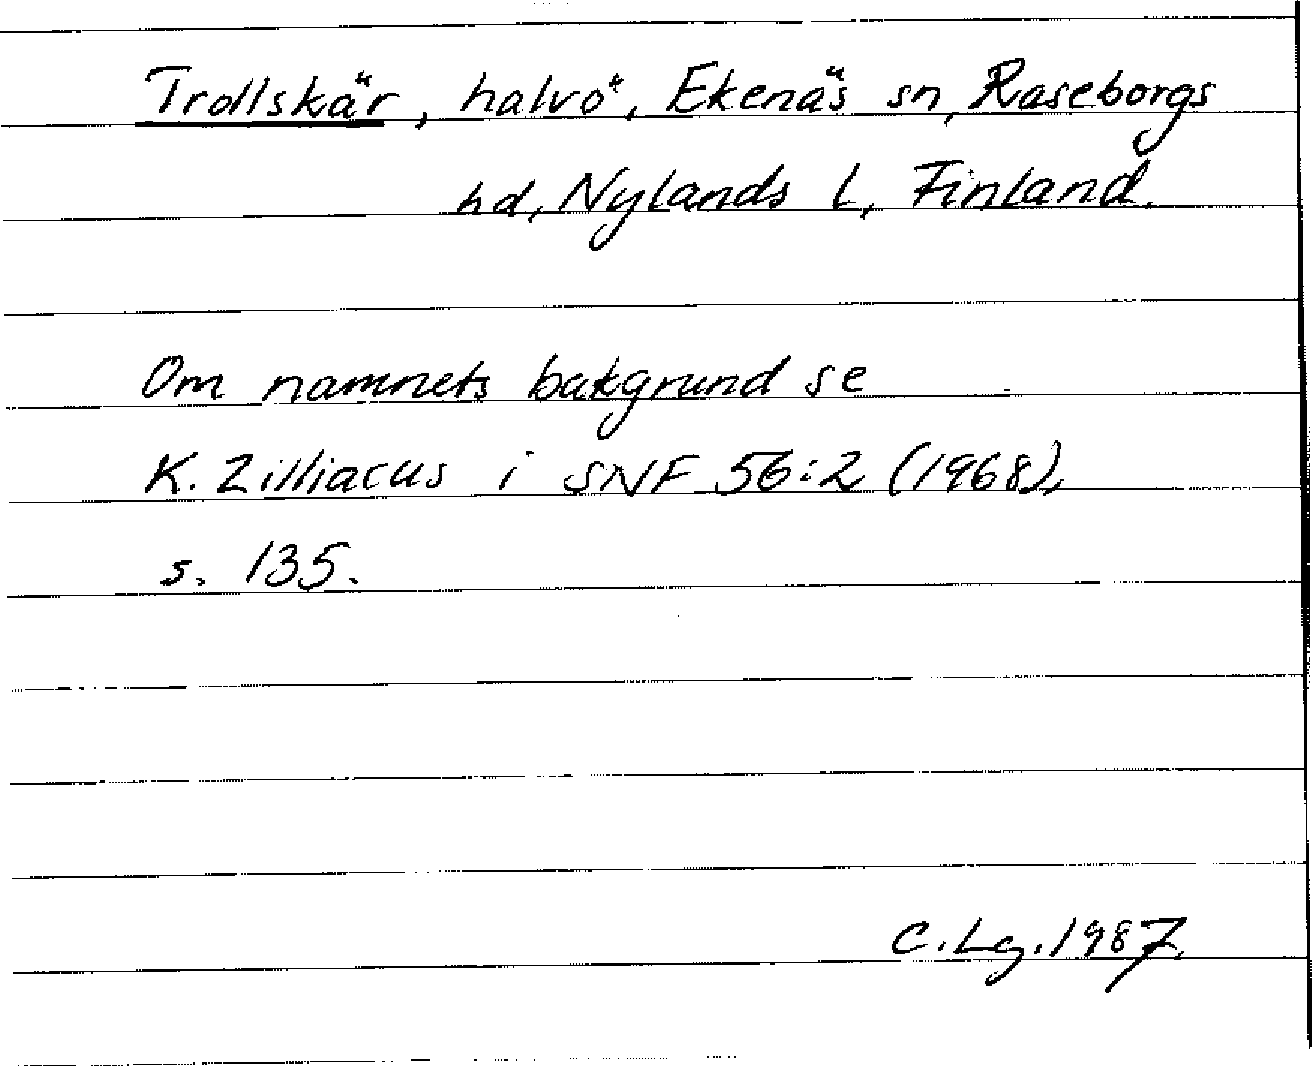 Trollskär, halvö, Ekenäs sn, Raseborgs
hd, Nylands L, Finland.
Om namnets bakgrund se
K. Zilliacus i SNF 56:2 (1968),
s. 135.
C. Lg. 1987.